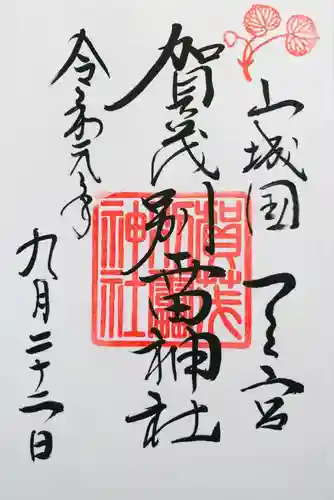 山城国一之宮
賀茂別雷神社
令和元年
九月二十二日
賀茂
別雷
神社